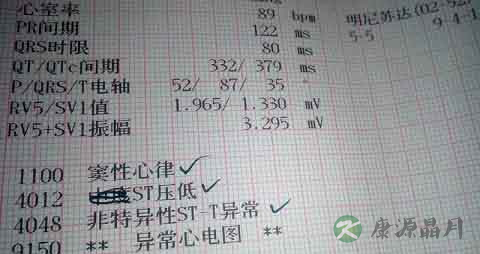 心室率 89 bpm
PR间期 122 ms
QRS时限 80 ms
QT/QTc间期 332/ 379 ms
P/QRS/T电轴 52/ 87/ 35 °
RV5/SV1值 1.965/ 1.330 mV
RV5+SV1振幅 3.295 mV
明尼苏达(02-92)
5-5 9-4-1
1100 窦性心律
4012 ST压低
4048 非特异性ST-T异常
9150 ** 异常心电图 **
康源晶月